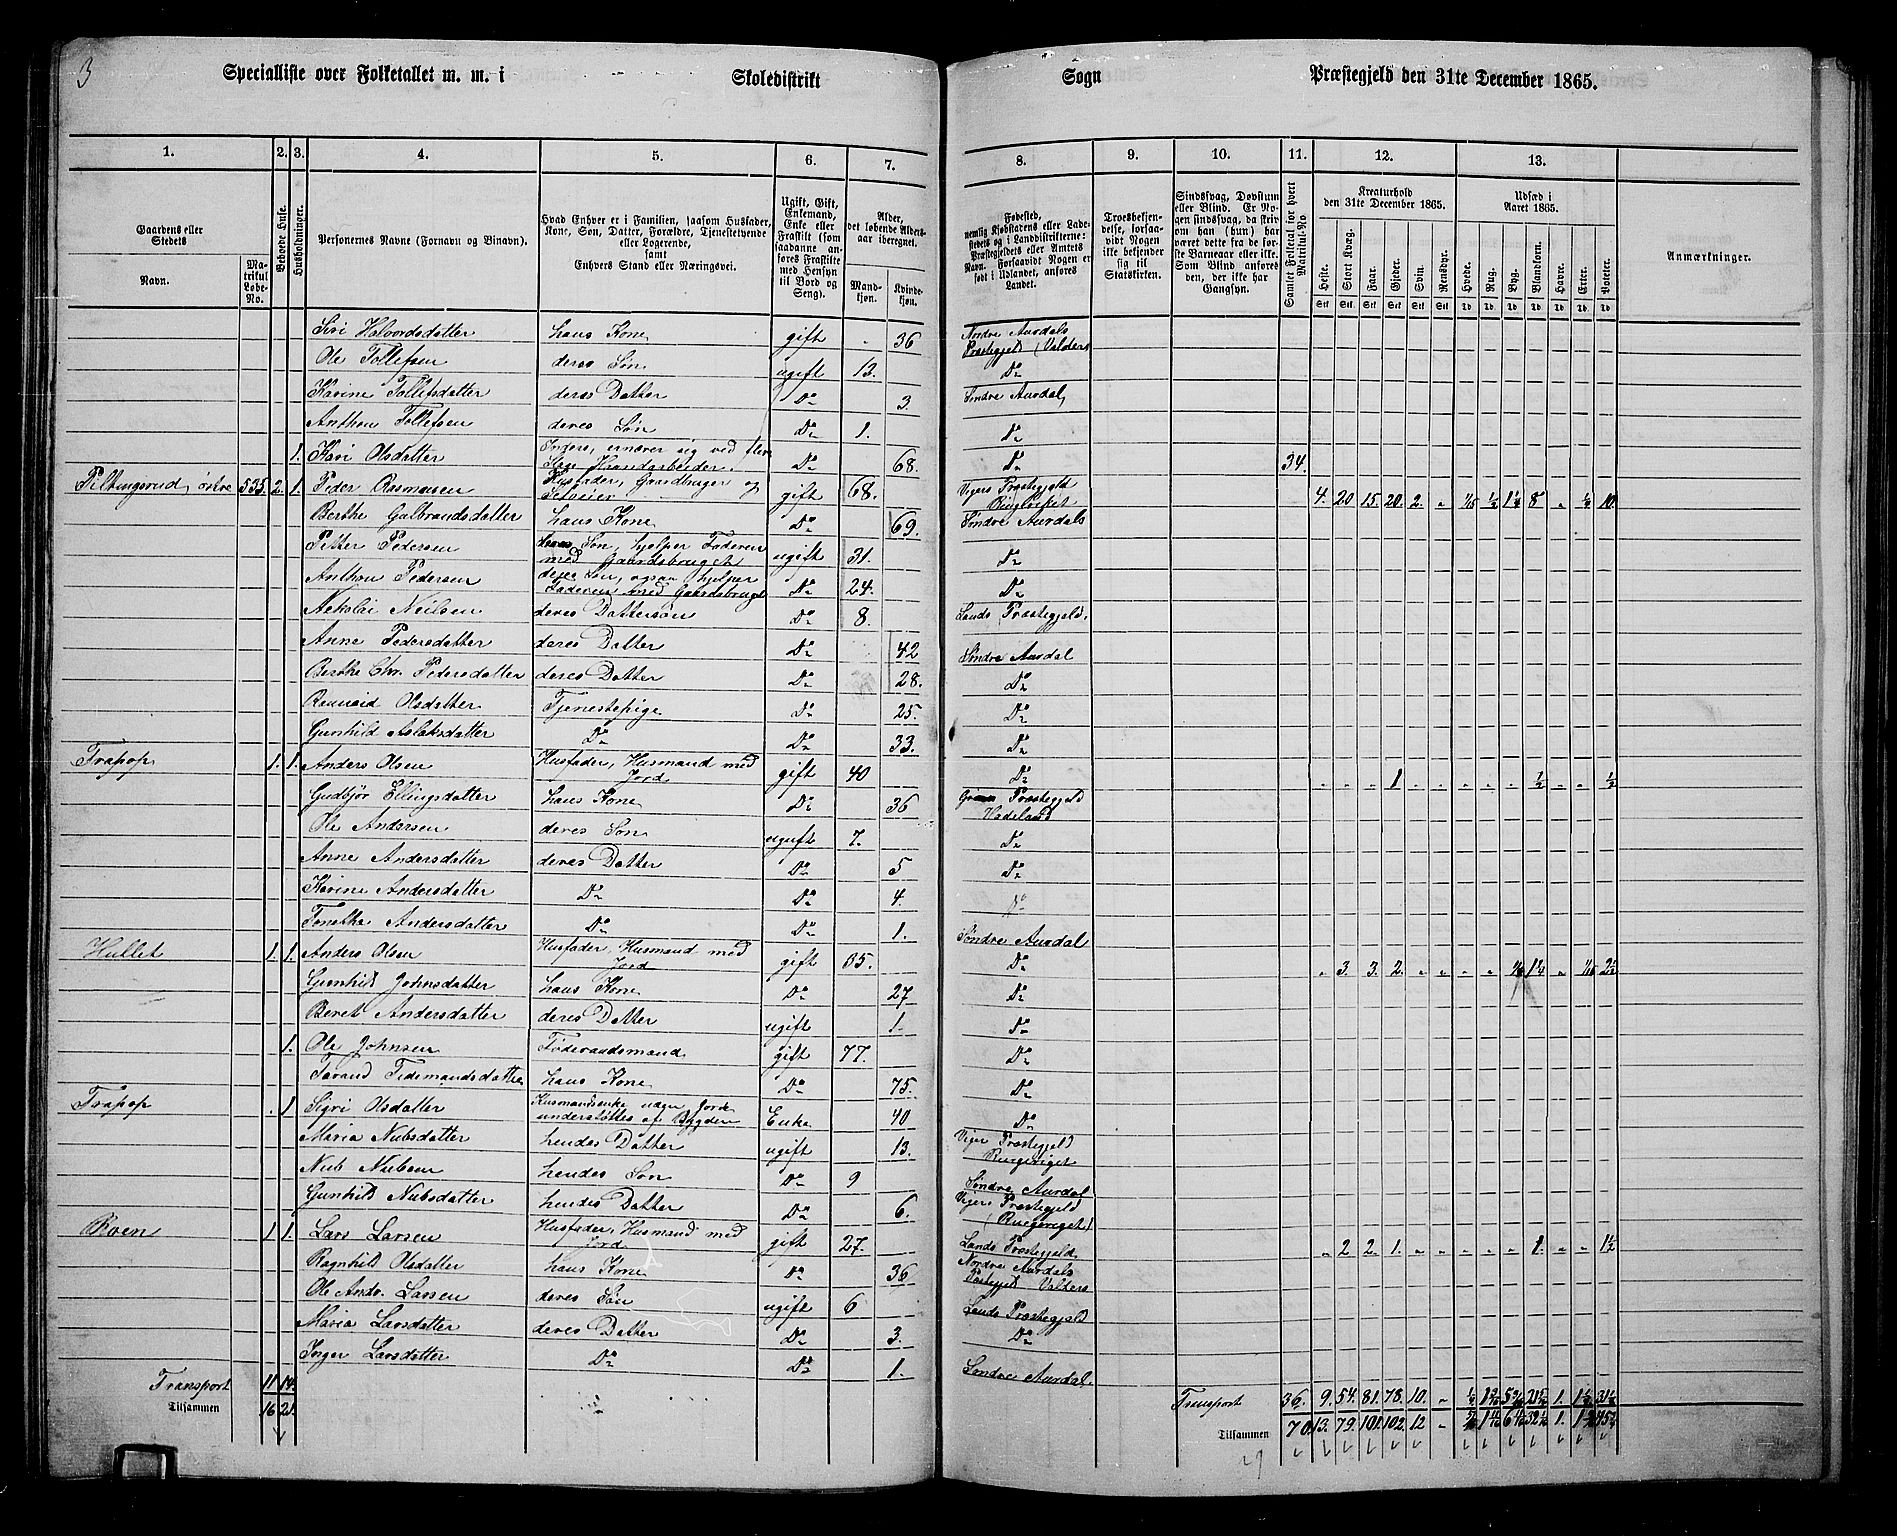 3
Specialliste over Folketallet m. m. i Skoledistrikt Sogn Præstegjeld den 31te December 1865.
1. 2. 3. 4. 5. 6. 7. 8. 9. 10. 11. 12. 13.
Gaardens eller Stedets
Navn.
Matrikul Løbe-No.
Bebyggede Huse.
Husholdninger.
Personernes Navne (Fornavn og Binavn).
Hvad Enhver er i Familien, saasom Husfader, Kone, Søn, Datter, Forældre, Tjenestetyende eller Logerende, samt Enhvers Stand eller Næringsvei.
Ugift, Gift, Enkemand, Enke eller Fraskilt (som saadanne anføres Fraskilte med Hensyn til Bord og Seng).
Alder, det løbende Aldersaar iberegnet.
Mandkjøn.
Kvindekjøn.
Fødested, nemlig Kjøbstadens eller Ladestedets og i Landdistrikterne: Præstegjeldets eller Amtets Navn. Forsaavidt Nogen er født i Udlandet, anføres Landet.
Troesbekjendelse, forsaavidt Nogen ikke bekjender sig til Statskirken.
Sindssvag, Døvstum eller Blind. Er Nogen sindssvag, da skriv om han (hun) har været dette fra de første Barneaar eller ikke. Som Blind anføres den, der ikke har Gangsyn.
Samlet Folketal for hvert Matrikul-No
Kreaturhold den 31te December 1865.
Heste. Stort Kvæg. Faar. Gjeder. Svin. Rensdyr.
Udsæd i Aaret 1865.
Hvede. Rug. Byg. Blandkorn. Havre. Erter. Poteter.
Anmærkninger.
Siri Halvordsdatter hans Kone gift - 36 Nordre Aurdals Præstegjeld (Valders
Ole Tollefsen deres Søn ugift 13. Do
Karine Tollefsdatter deres Datter Do 3. Søndre Aurdal,
Anthon Tollefsen deres Søn Do 1. Do
1. Kari Olsdatter ernærer sig ved Slags Haandarbeider. Do 68. Do 34.
østre 535. 2. 1. Peder Rasmusen Husfader, Gaardbruger og Selveier gift 68. Præstegjeld 4. 20 15. 20. 2. 8 10.
Berthe Gulbrandsdatter hans Kone Do 69. Søndre Aurdals
Petter Pedersen deres Søn, hjelper Faderen med Gaardsbruget ugift 31. Do
Anthon Pedersen deres Søn, ogsaa hjelper Faderen med Gaardsbruget Do 24. Do
Nikolai Neilsen deres Dattersøn Do 8. Lands Præstegjeld.
Anne Pedersdatter deres Datter Do 42 Søndre Aurdal
Berthe Chr. Pedersdatter deres Datter Do 28. Do
Olsdatter Tjenestepige Do 25. Do
Gunhild Aslaksdatter Do Do 33. Do
Trapop 1. 1. Anders Olsen Husfader, Husmand med Jord gift 40 Do 1. ½ ½
Gudbjør Ellingsdatter hans Kone Do 36 Præstegjeld Hadeland
Ole Andersen deres Søn ugift 7. Do
Anne Andersdatter deres Datter Do 5 Do
Karine Andersdatter Do Do 4. Do
Andersdatter Do Do 1. Søndre Aurdal
Hullet 1. 1. Anders Olsen Husfader, Husmand med Jord gift 35. Do 3. 3. 2.
Gunhild Johnsdatter hans Kone Do 27 Do
Beret Andersdatter deres Datter ugift 1. Do
1. Ole Johnsen Føderaadsmand gift 77. Do
Tidemandsdatter hans Kone Do 75. Do
Trapop 1 Sigri Olsdatter Husmandsenke uden Jord understøttes af Bygden Enke 40 Do
Maria Nubsdatter hendes Datter ugift 13. Præstegjeld
Nub Nubsen hendes Søn Do 9 Søndre Aurdal
Gunhild Nubsdatter hendes Datter Do 6. Præstegjeld
Roen 1 1. Lars Larsen Husfader, Husmand med Jord gift 27. Lands Præstegjeld. 2 2. 1. 1. 1½
Ragnhild Olsdatter hans Kone Do 36 Nordre Aurdals Valders
Ole Andr. Larsen deres Søn ugift 6 Lands Præstegjeld
Maria Larsdatter deres Datter Do 3. Do
Inger Larsdatter Do Do 1. Søndre Aurdal.
Transport 11 14. Transport 36. 9. 54. 81. 78. 10.
Tilsammen 16 21. Tilsammen 70. 13. 79. 101. 102. 12